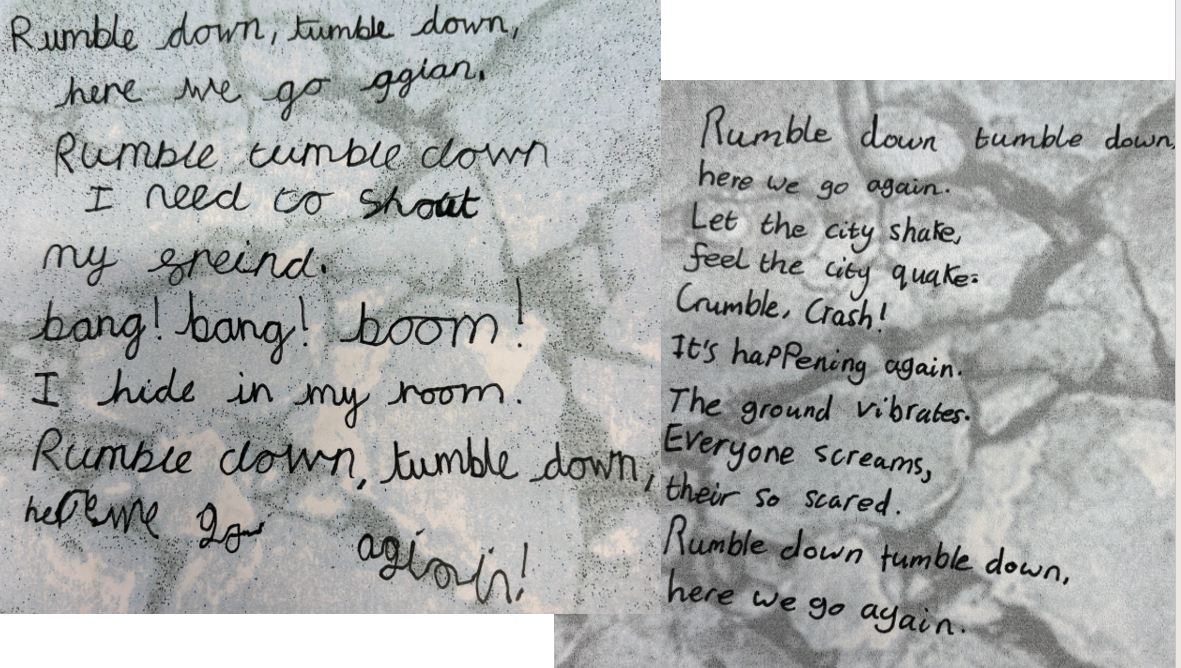 Rumble down, tumble down,
here we go ggian.
Rumble tumble down
I need to shout
my greind.
bang! bang! boom!
I hide in my room.
Rumble down, tumble down,
here we
agioin!
Rumble down tumble down,
here we go again.
Let the city shake,
feel the city quake.
Crumble, Crash!
It's happening again.
The ground vibrates.
Everyone screams,
their so scared.
Rumble down tumble down,
here we go again.